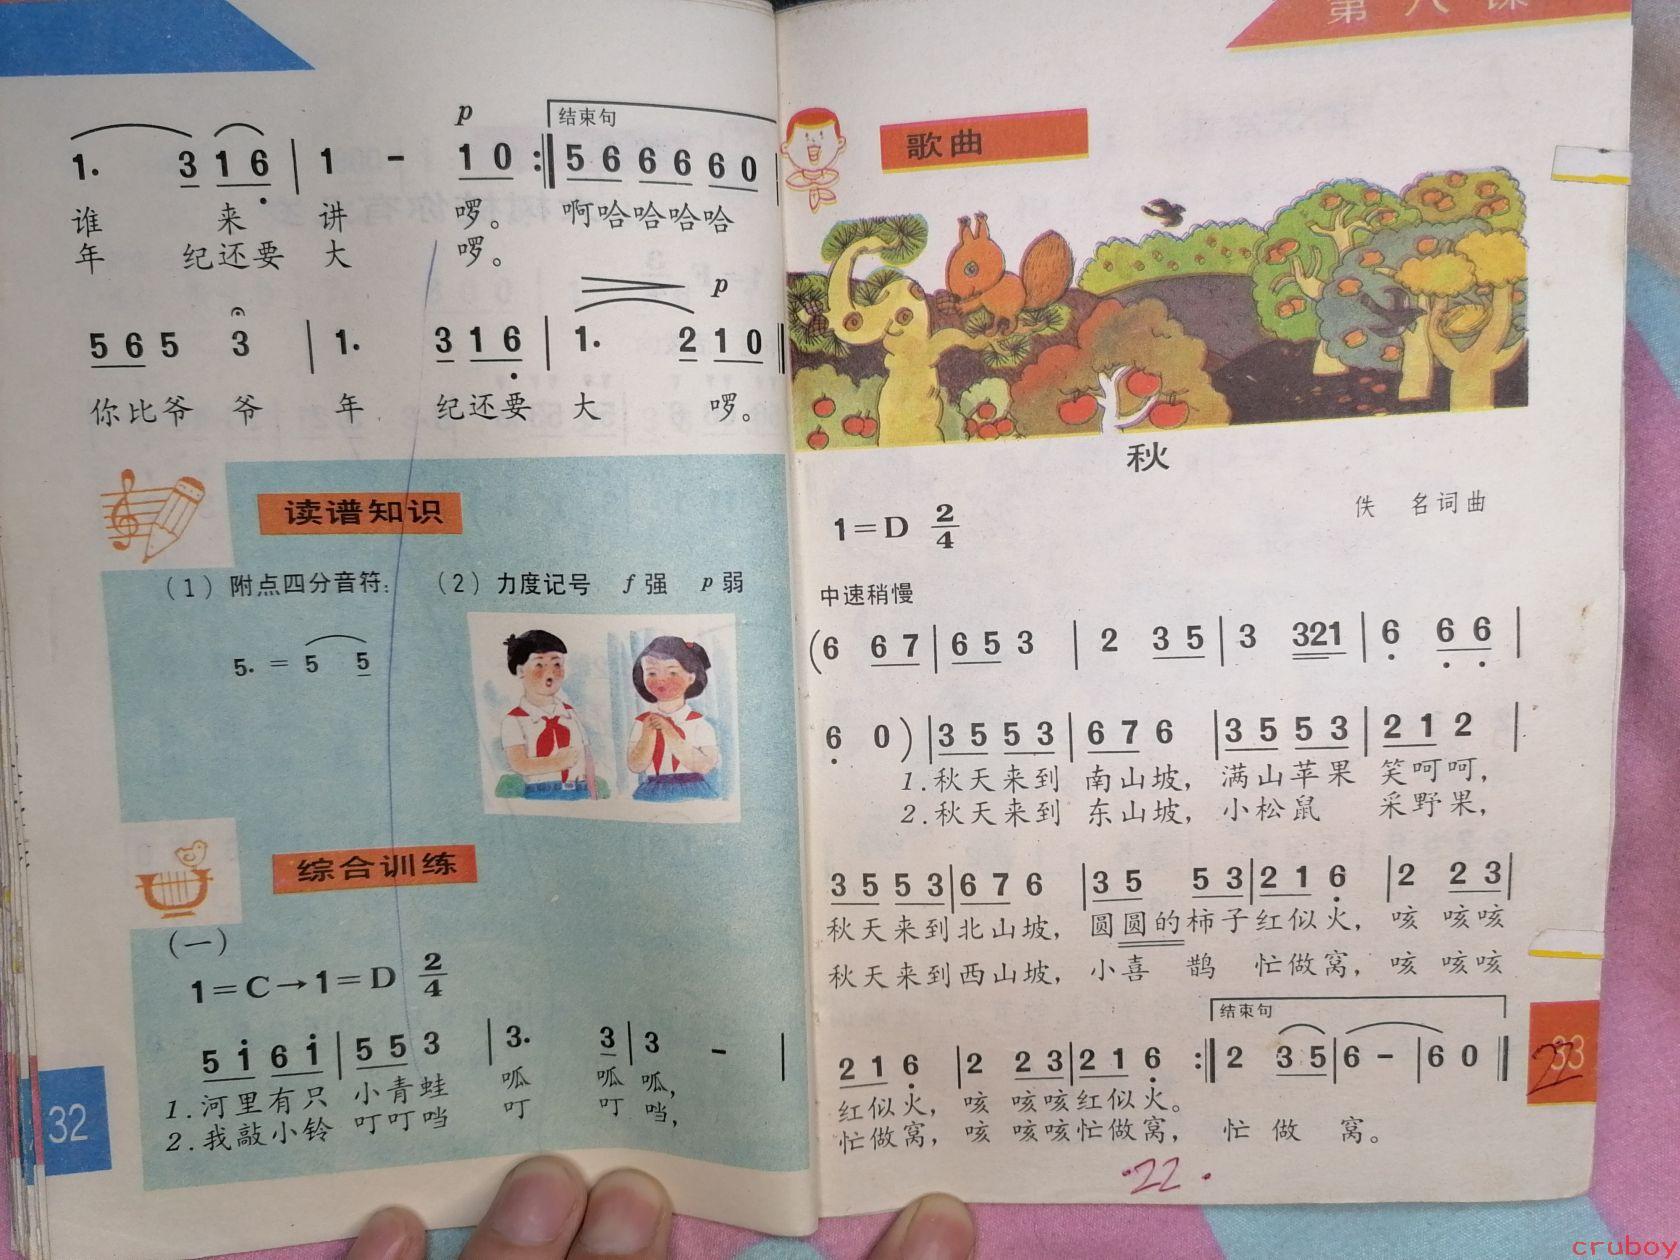 p
结束句
1· 3 1 6 | 1 - 1 0 :‖ 5 6 6 6 6 0 |
谁 来 讲 啰。 啊哈哈哈哈
年 纪还要 大 啰。
p
5 6 5 3 | 1· 3 1 6 | 1· 2 1 0 ‖
你比爷 爷 年 纪还要 大 啰。
读谱知识
(1) 附点四分音符: (2) 力度记号 f 强 p 弱
5· = 5 5
综合训练
(一)
1=C→1=D 2/4
5 1 6 1 | 5 5 3 | 3· 3 | 3 - |
1.河里有只 小青蛙 呱 呱 呱,
2.我敲小铃 叮叮当 叮 叮 当,
32
第八课
歌曲
秋
佚 名词曲
1=D 2/4
中速稍慢
(6 6 7 | 6 5 3 | 2 3 5 | 3 321 | 6 6 6 |
6 0 ) | 3 5 5 3 | 6 7 6 | 3 5 5 3 | 2 1 2 |
1.秋天来到 南山坡, 满山苹果 笑呵呵,
2.秋天来到 东山坡, 小松鼠 采野果,
3 5 5 3 | 6 7 6 | 3 5 5 3 | 2 1 6 | 2 2 3 |
秋天来到北山坡, 圆圆的柿子红似火, 咳 咳咳
秋天来到西山坡, 小喜 鹊 忙做窝, 咳 咳咳
结束句
2 1 6 | 2 2 3 | 2 1 6 :‖ 2 3 5 | 6 - | 6 0 ‖
红似火, 咳 咳咳红似火。
忙做窝, 咳 咳咳忙做窝, 忙 做 窝。
33
22
·22·
cruboy